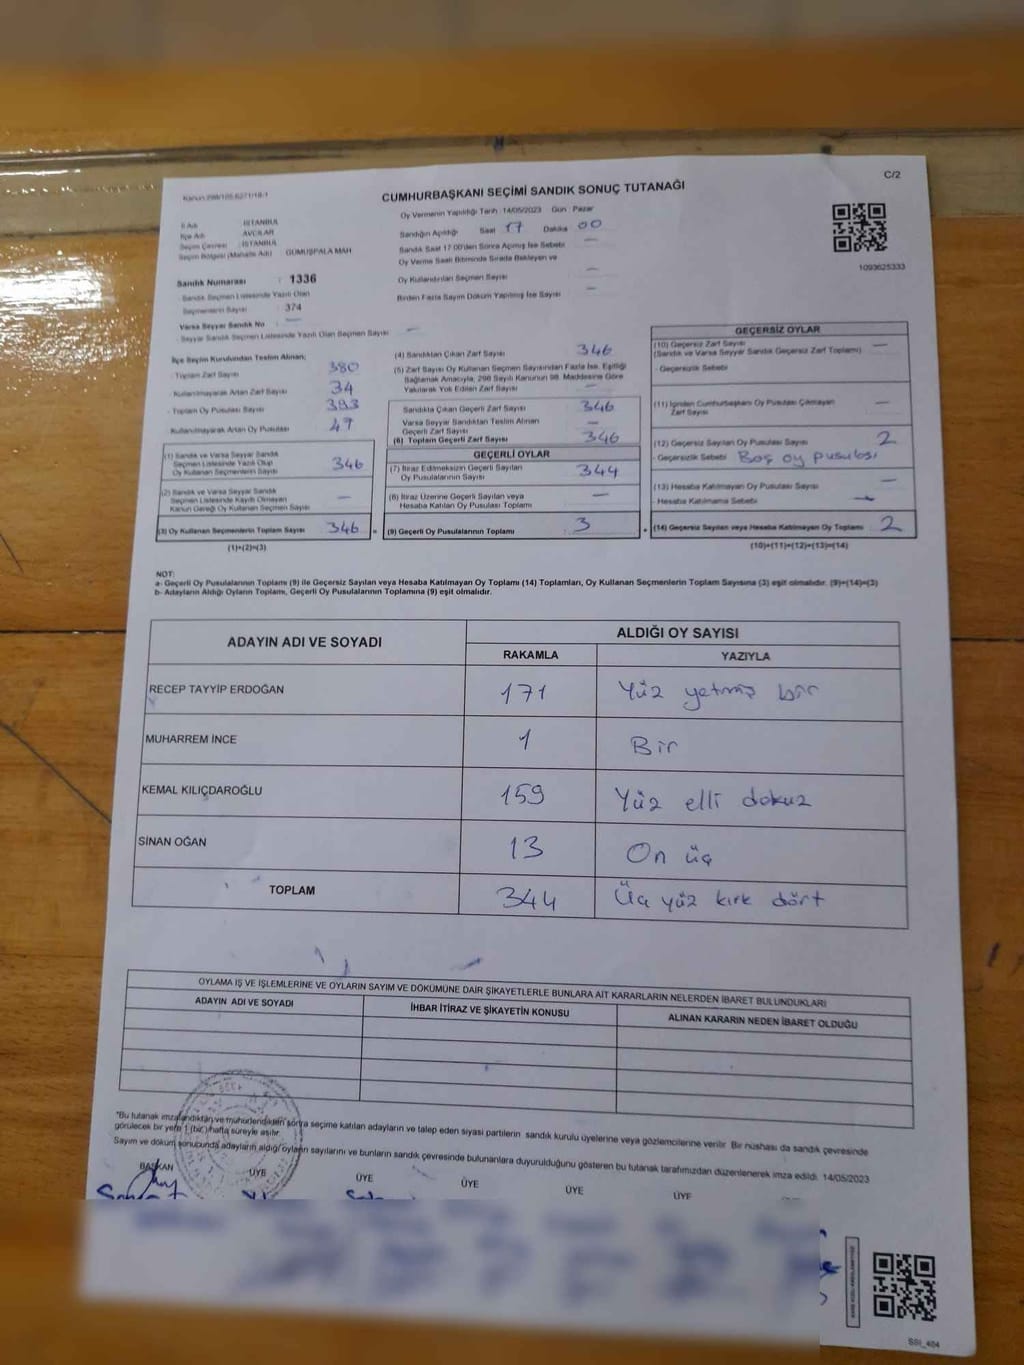 Kanun:298/105.6271/18/1
C/2
CUMHURBAŞKANI SEÇİMİ SANDIK SONUÇ TUTANAĞI
Oy Vermenin Yapıldığı Tarih :14/05/2023 Gün : Pazar
İl Adı : İSTANBUL
İlçe Adı : AVCILAR
Seçim Çevresi : İSTANBUL
Seçim Bölgesi (Mahalle Adı) : GÜMÜŞPALA MAH
Sandığın Açıldığı Saat 17 Dakika 00
Sandık Saat 17:00'den Sonra Açılmış İse Sebebi —
Oy Verme Saati Bitiminde Sırada Bekleyen ve
Oy Kullandırılan Seçmen Sayısı —
Birden Fazla Sayım Döküm Yapılmış İse Sayısı —
1093625333
Sandık Numarası : 1336
Sandık Seçmen Listesinde Yazılı Olan
Seçmenlerin Sayısı : 374
Varsa Seyyar Sandık No —
Seyyar Sandık Seçmen Listesinde Yazılı Olan Seçmen Sayısı —
İlçe Seçim Kurulundan Teslim Alınan;
Toplam Zarf Sayısı 380
Kullanılmayarak Artan Zarf Sayısı 34
Toplam Oy Pusulası Sayısı 393
Kullanılmayarak Artan Oy Pusulası 47
(1) Sandık ve Varsa Seyyar Sandık
Seçmen Listesinde Yazılı Olup
Oy Kullanan Seçmenlerin Sayısı 346
(2) Sandık ve Varsa Seyyar Sandık
Seçmen Listesinde Kayıtlı Olmayan
Kanun Gereği Oy Kullanan Seçmen Sayısı —
(3) Oy Kullanan Seçmenlerin Toplam Sayısı 346 =
(1)+(2)=(3)
(4) Sandıktan Çıkan Zarf Sayısı 346
(5) Zarf Sayısı Oy Kullanan Seçmen Sayısından Fazla İse, Eşitliği
Sağlamak Amacıyla, 298 Sayılı Kanunun 98. Maddesine Göre
Yakılarak Yok Edilen Zarf Sayısı —
Sandıkta Çıkan Geçerli Zarf Sayısı 346
Varsa Seyyar Sandıktan Teslim Alınan
Geçerli Zarf Sayısı —
(6) Toplam Geçerli Zarf Sayısı 346
GEÇERLİ OYLAR
(7) İtiraz Edilmeksizin Geçerli Sayılan
Oy Pusulalarının Sayısı 344
(8) İtiraz Üzerine Geçerli Sayılan veya
Hesaba Katılan Oy Pusulası Toplamı —
(9) Geçerli Oy Pusulalarının Toplamı : 3 +
GEÇERSİZ OYLAR
(10) Geçersiz Zarf Sayısı —
(Sandık ve Varsa Seyyar Sandık Geçersiz Zarf Toplamı)
- Geçersizlik Sebebi
(11) İçinden Cumhurbaşkanı Oy Pusulası Çıkmayan
Zarf Sayısı —
(12) Geçersiz Sayılan Oy Pusulası Sayısı 2
- Geçersizlik Sebebi Boş oy pusulası
(13) Hesaba Katılmayan Oy Pusulası Sayısı —
- Hesaba Katılmama Sebebi —
(14) Geçersiz Sayılan veya Hesaba Katılmayan Oy Toplamı 2
(10)+(11)+(12)+(13)=(14)
NOT:
a- Geçerli Oy Pusulalarının Toplamı (9) ile Geçersiz Sayılan veya Hesaba Katılmayan Oy Toplamı (14) Toplamları, Oy Kullanan Seçmenlerin Toplam Sayısına (3) eşit olmalıdır. (9)+(14)=(3)
b- Adayların Aldığı Oyların Toplamı, Geçerli Oy Pusulalarının Toplamına (9) eşit olmalıdır.
ADAYIN ADI VE SOYADI
ALDIĞI OY SAYISI
RAKAMLA YAZIYLA
RECEP TAYYİP ERDOĞAN 171 Yüz yetmiş bir
MUHARREM İNCE 1 Bir
KEMAL KILIÇDAROĞLU 159 Yüz elli dokuz
SİNAN OĞAN 13 On üç
TOPLAM 344 Üç yüz kırk dört
OYLAMA İŞ VE İŞLEMLERİNE VE OYLARIN SAYIM VE DÖKÜMÜNE DAİR ŞİKAYETLERLE BUNLARA AİT KARARLARIN NELERDEN İBARET BULUNDUKLARI
ADAYIN ADI VE SOYADI İHBAR İTİRAZ VE ŞİKAYETİN KONUSU ALINAN KARARIN NEDEN İBARET OLDUĞU
*Bu tutanak imzalandıktan ve mühürlendikten sonra seçime katılan adayların ve talep eden siyasi partilerin sandık kurulu üyelerine veya gözlemcilerine verilir. Bir nüshası da sandık çevresinde
görülecek bir yere 1 (bir) hafta süreyle asılır.
Sayım ve döküm sonucunda adayların aldığı oyların sayılarını ve bunların sandık çevresinde bulunanlara duyurulduğunu gösteren bu tutanak tarafımızdan düzenlenerek imza edildi. 14/05/2023
BAŞKAN ÜYE ÜYE ÜYE ÜYE ÜYE
SSI_404